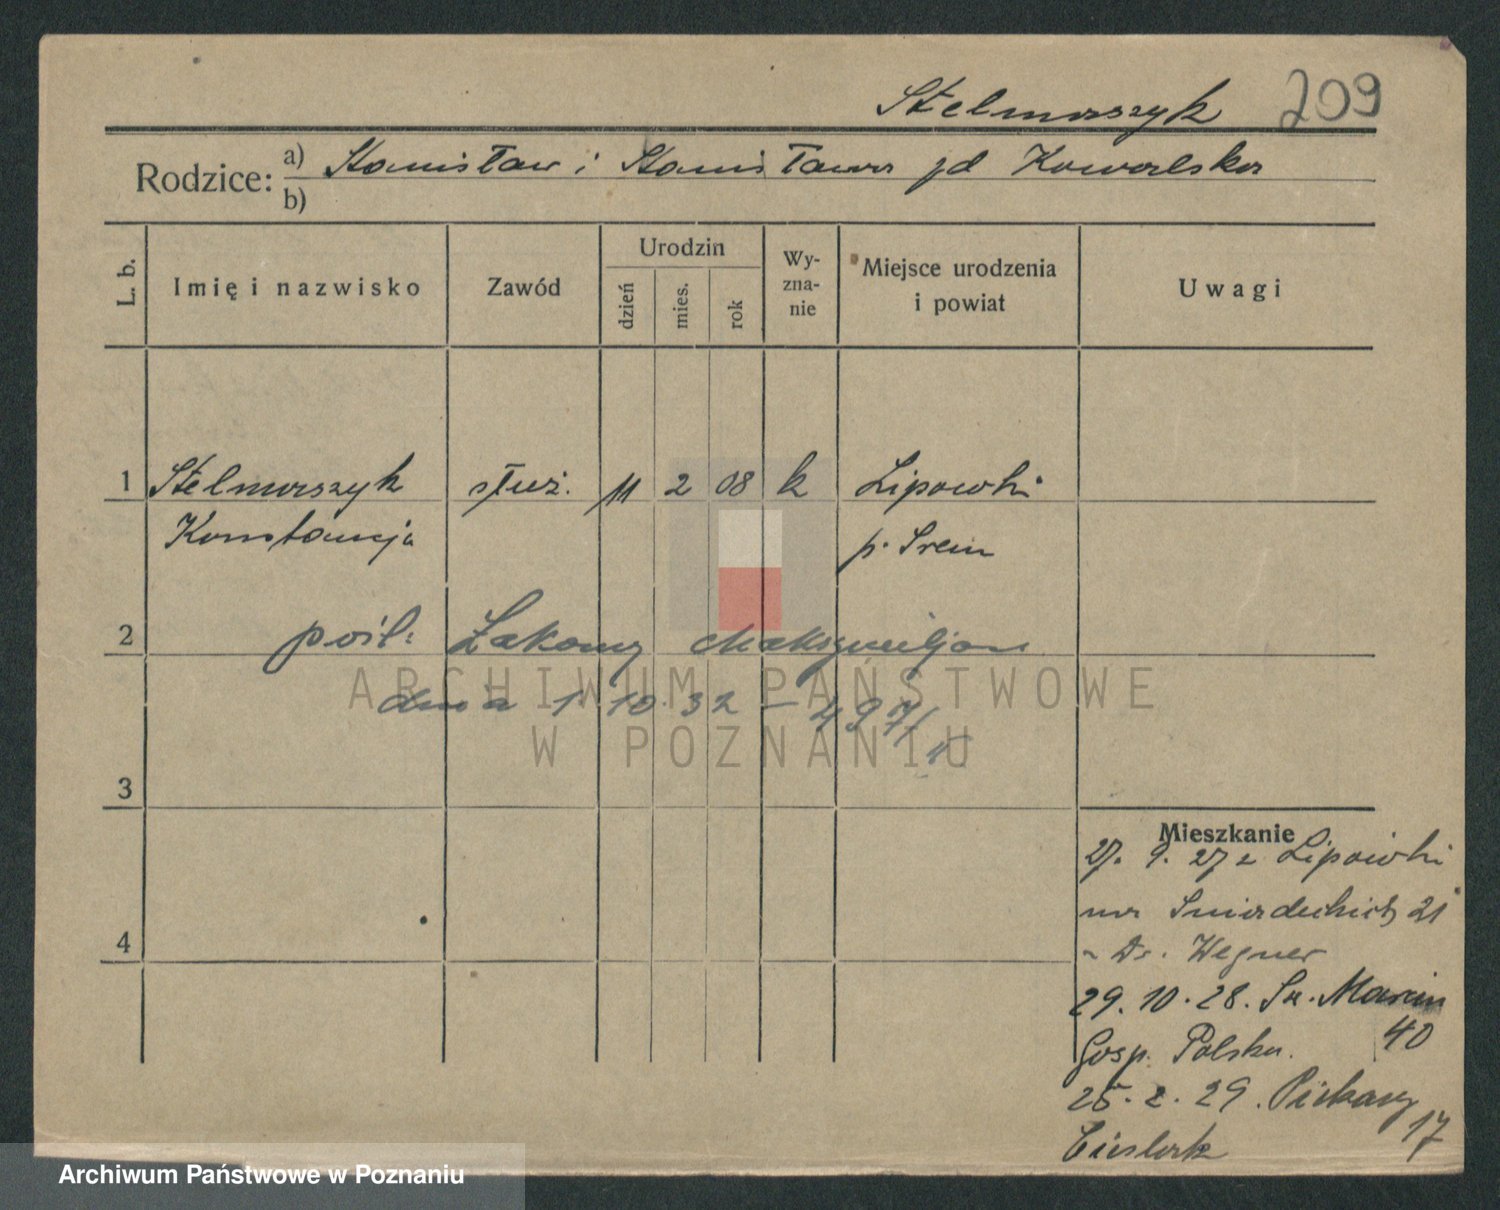 Stelmaszyk 209
Rodzice: a) Stanisław i Stanisława zd Kowalska
b)
L. b. Imię i nazwisko Zawód Urodzin dzień mies. rok Wy-zna-nie Miejsce urodzenia i powiat Uwagi
1 Stelmaszyk służ. 11 2 08 k Lipowki
Konstancja p. Srem
2 pośl: Łakomy Maksymiljan
dnia 1 10 32 - 497/
ARCHIWUM PAŃSTWOWE
W POZNANIU
3
Mieszkanie
27. 9. 27 z Lipowki
na Sniadeckich 21
Dr. Wegner
4
29. 10. 28. Sw. Marcin
40
Gosp. Polska.
25. 2. 29. Piekary
17
Cieslak
Archiwum Państwowe w Poznaniu